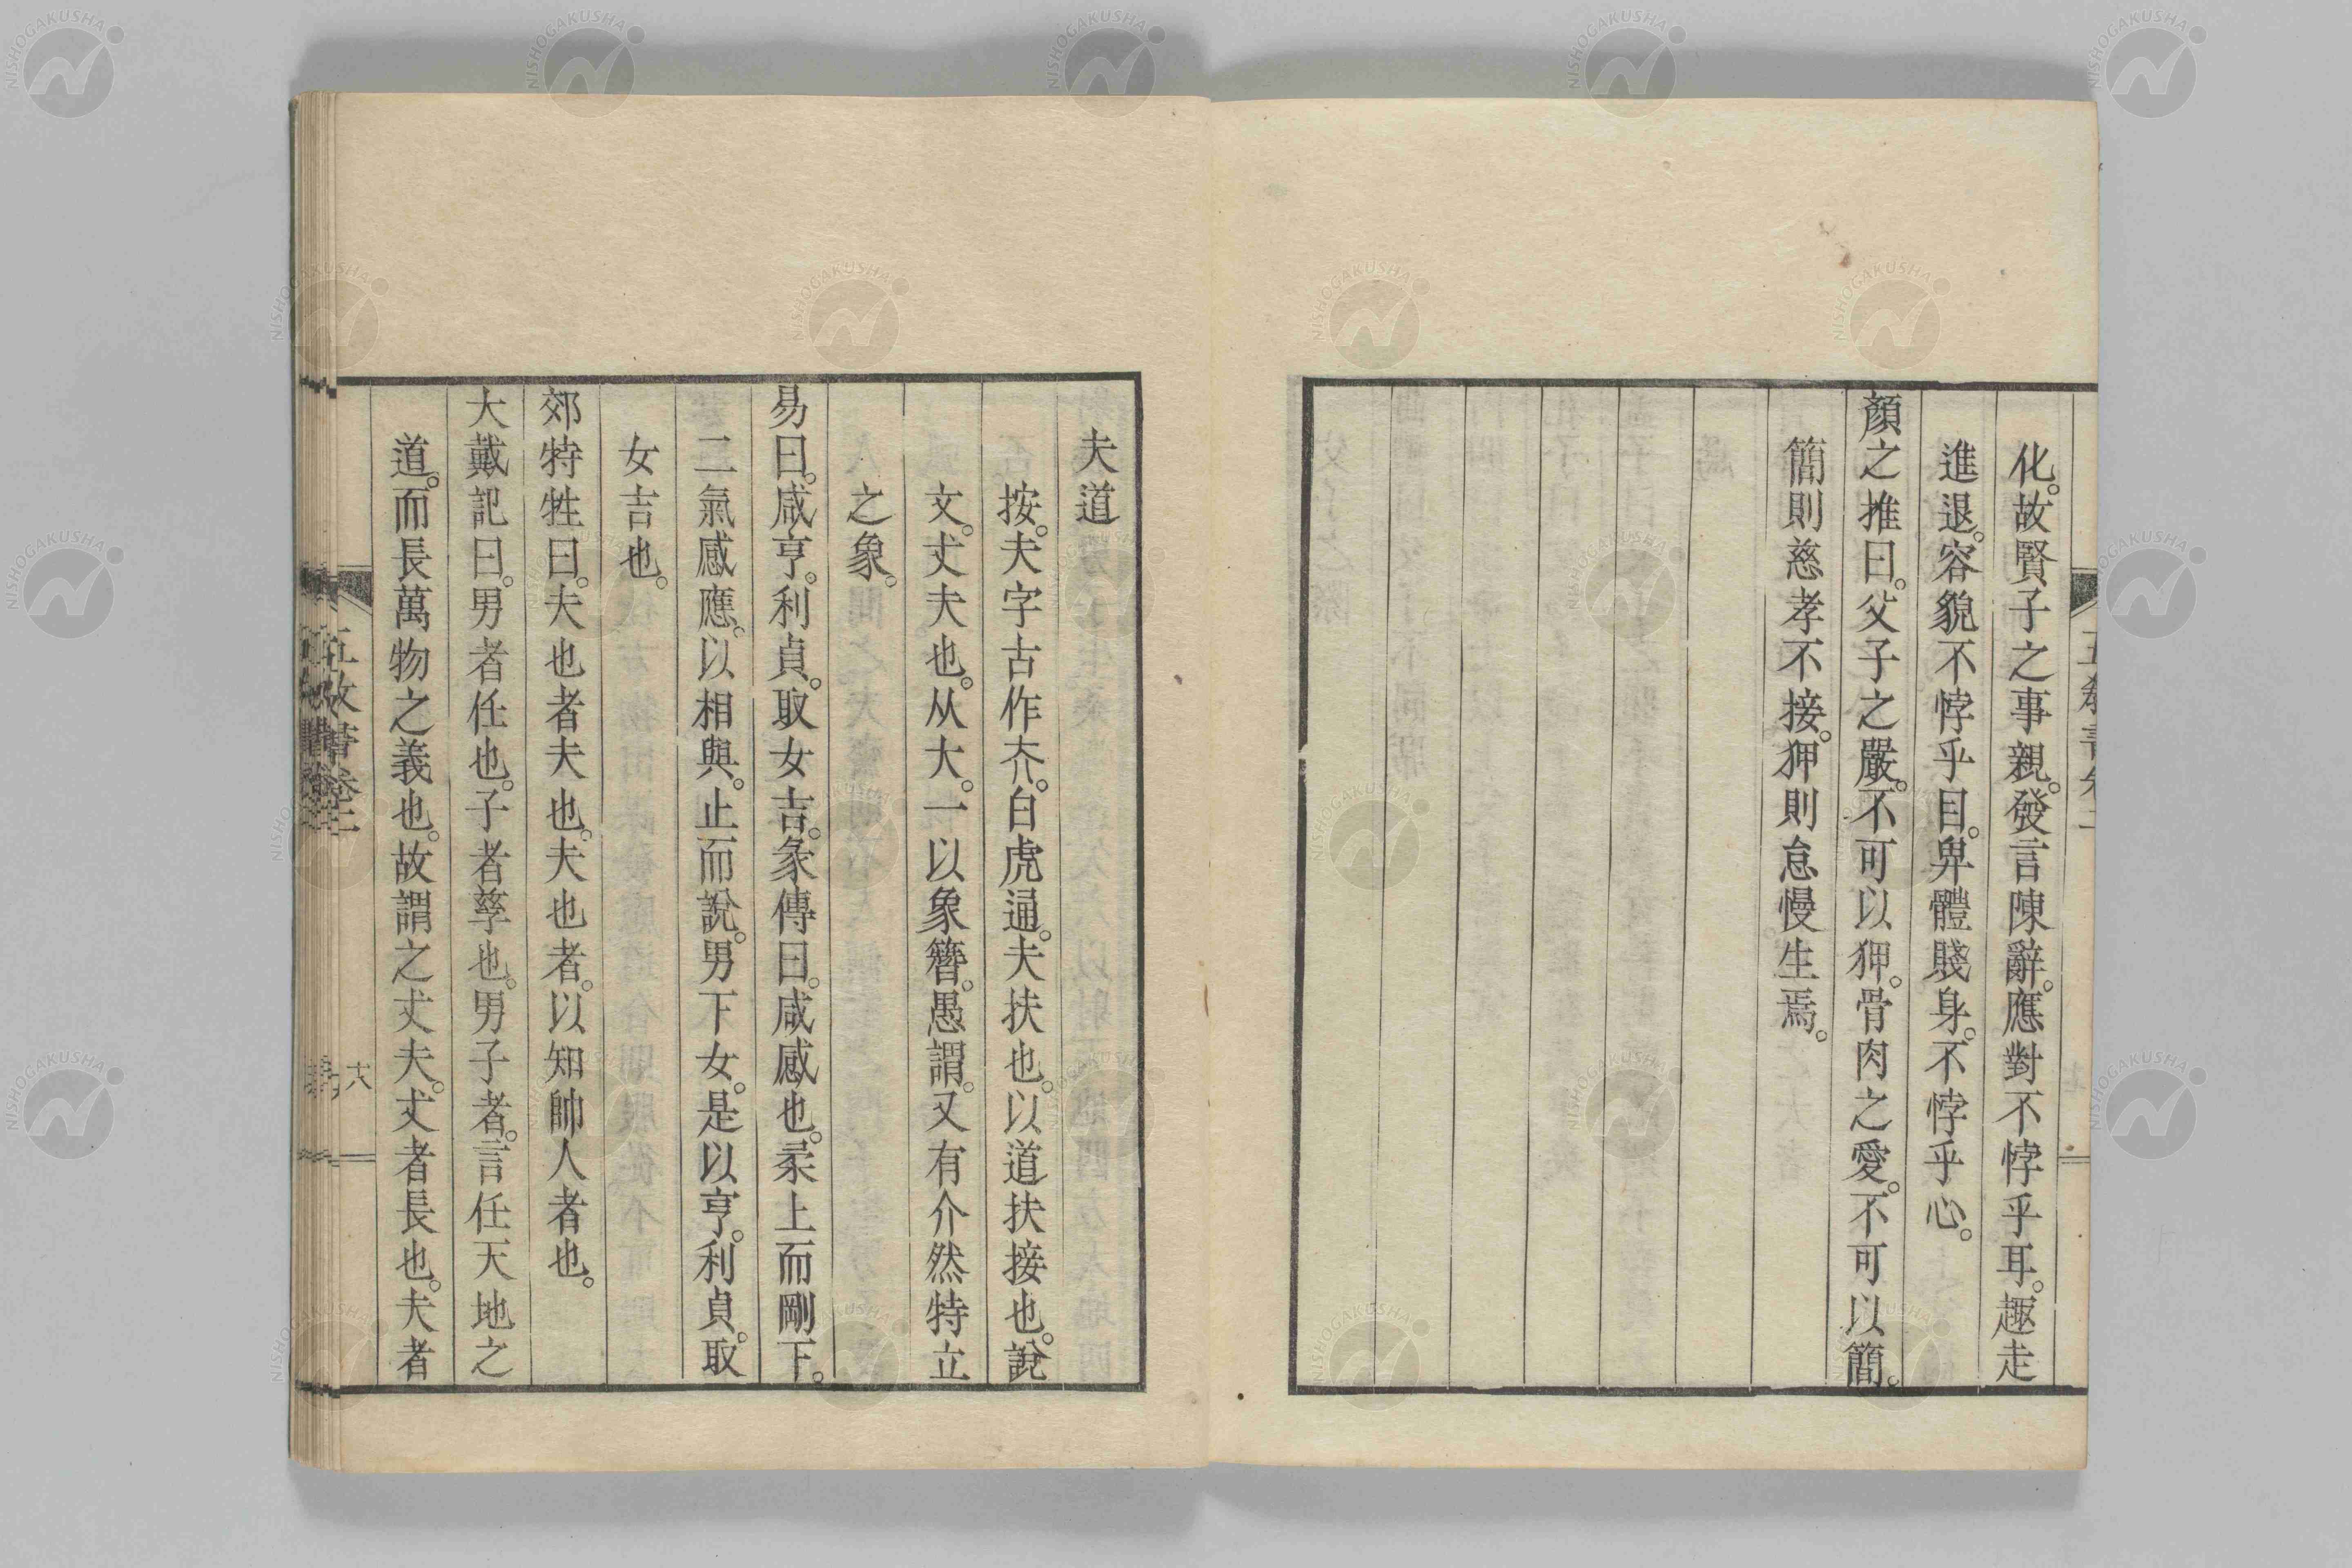 化。故賢子之事親。發言陳辭。應對不悖乎耳。趣走
進退。容貌不悖乎目。卑體賤身。不悖乎心。
顏之推曰。父子之嚴。不可以狎。骨肉之愛。不可以簡。
簡則慈孝不接。狎則怠慢生焉。
夫道
按。夫字古作夰。白虎通。夫扶也。以道扶接也。說
文。丈夫也。从大。一以象簪。愚謂。又有介然特立
之象。
易曰。咸亨。利貞。取女吉。彖傳曰。咸感也。柔上而剛下。
二氣感應。以相與。止而說。男下女。是以亨。利貞。取
女吉也。
郊特牲曰。夫也者夫也。夫也者。以知帥人者也。
大戴記曰。男者任也。子者孳也。男子者。言任天地之
道。而長萬物之義也。故謂之丈夫。丈者長也。夫者
十八
NISHOGAKUSHA